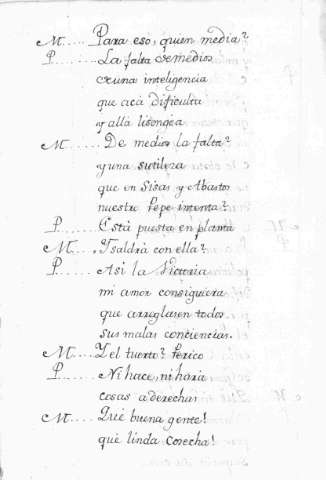 M..... Para eso, quien media?
P...... La falta de medios
de una inteligencia
que acá dificulta
y allá lisongea
M..... De medios la falta?
y una sutileza
que en Sisas y Abastos
nuestro Pepe intenta?
P....... Está puesta en planta
M..... Y saldrá con ella?
P...... Asi la Victoria
mi amor consiguiera
que arreglasen todos
sus malas conciencias.
M..... Y el tuerto? Perico
P...... Ni hace, ni haria
cosas a derechas
M..... Qué buena gente!
qué linda cosecha!